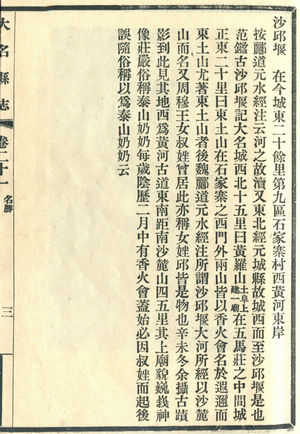 沙邱堰　在今城東二十餘里第九區石家寨村西黃河東岸
按酈道元水經注云河之故瀆又東北經元城縣故城西而至沙邱堰是也
范鑑古沙邱堰記大名城西北十五里曰黃羅山土阜上建一廟在五馬莊之中間城
正東二十里曰東土山在石家寨之西門外兩山皆以香火會名於遐邇而
東土山尤著東土山者後魏酈道元水經注所謂沙邱堰大河所經以沙麓
山而名又周穆王女叔姓曾居此亦稱女姓邱皆是物也辛未冬余攝古蹟
影到此見其地西為黃河古道東南距南沙麓山四五里其上廟貌巍峩神
像莊嚴俗稱泰山奶奶每歲陰歷二月中有香火會蓋始必因叔姓而起後
誤隨俗稱以為泰山奶奶云
大名縣志
卷二十一
名勝
三